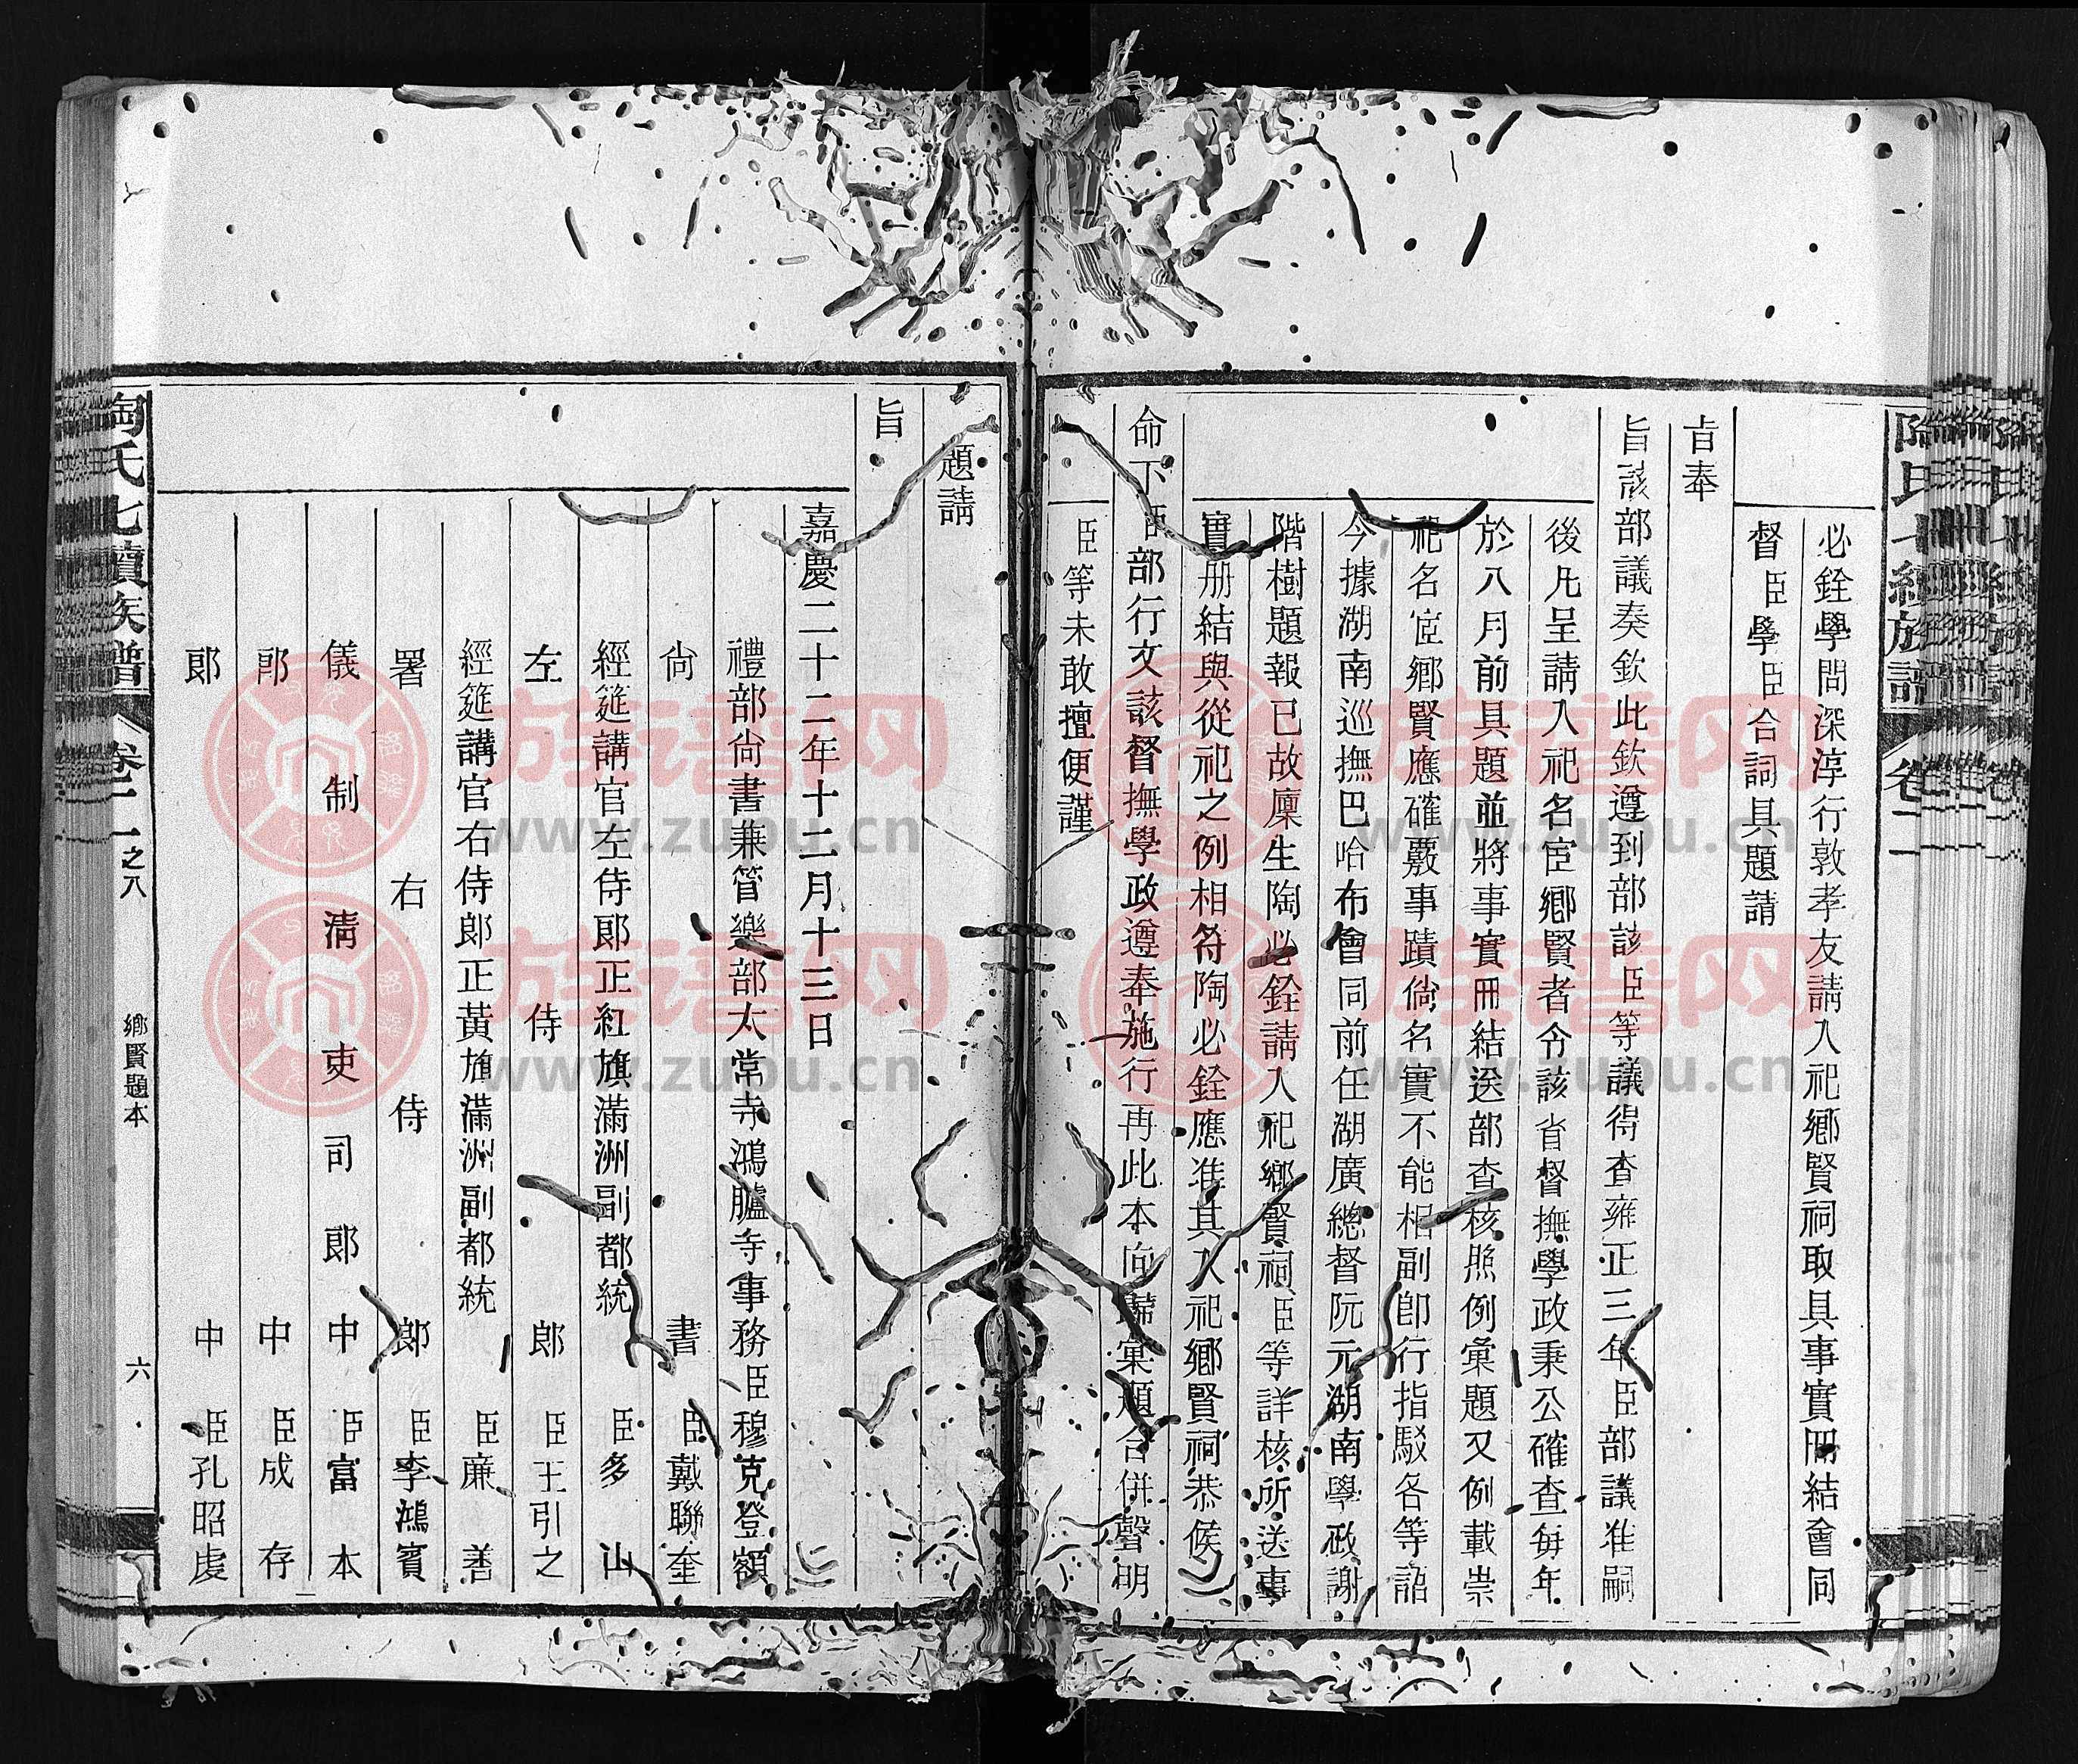 必銓學問深淳行敦孝友請入祀鄉賢祠取具事實冊結會同
督臣學臣合詞具題請
旨奉
旨該部議奏欽此欽遵到部該臣等議得查雍正三年臣部議准嗣
後凡呈請入祀名宦鄉賢者令該省督撫學政秉公確查每年
於八月前具題並將事實冊結送部查核照例彙題又例載崇
祀名宦鄉賢應確覈事蹟倘名實不能相副卽行指駁各等語
今據湖南巡撫巴哈布會同前任湖廣總督阮元湖南學政謝
階樹題報已故廩生陶必銓請入祀鄉賢祠臣等詳核所送事
實册結與從祀之例相符陶必銓應准其入祀鄉賢祠恭候
命下臣部行文該督撫學政遵奉施行再此本向歸彙題合併聲明
臣等未敢擅便謹
題請
旨
嘉慶二十二年十二月十三日
禮部尙書兼管樂部太常寺鴻臚寺事務臣穆克登額
尙書臣戴聯奎
經筵講官左侍郞正紅旗滿洲副都統臣多山
左侍郞臣王引之
經筵講官右侍郞正黃旗滿洲副都統臣廉善
署右侍郞臣李鴻賓
儀制淸吏司郞中臣富本
郞中臣成存
郞中臣孔昭虔
陶氏七續族譜
卷二
二之八
鄉賢題本
六
族谱网
www.zupu.cn
族谱网
www.zupu.cn
族谱网
www.zupu.cn
族谱网
www.zupu.cn